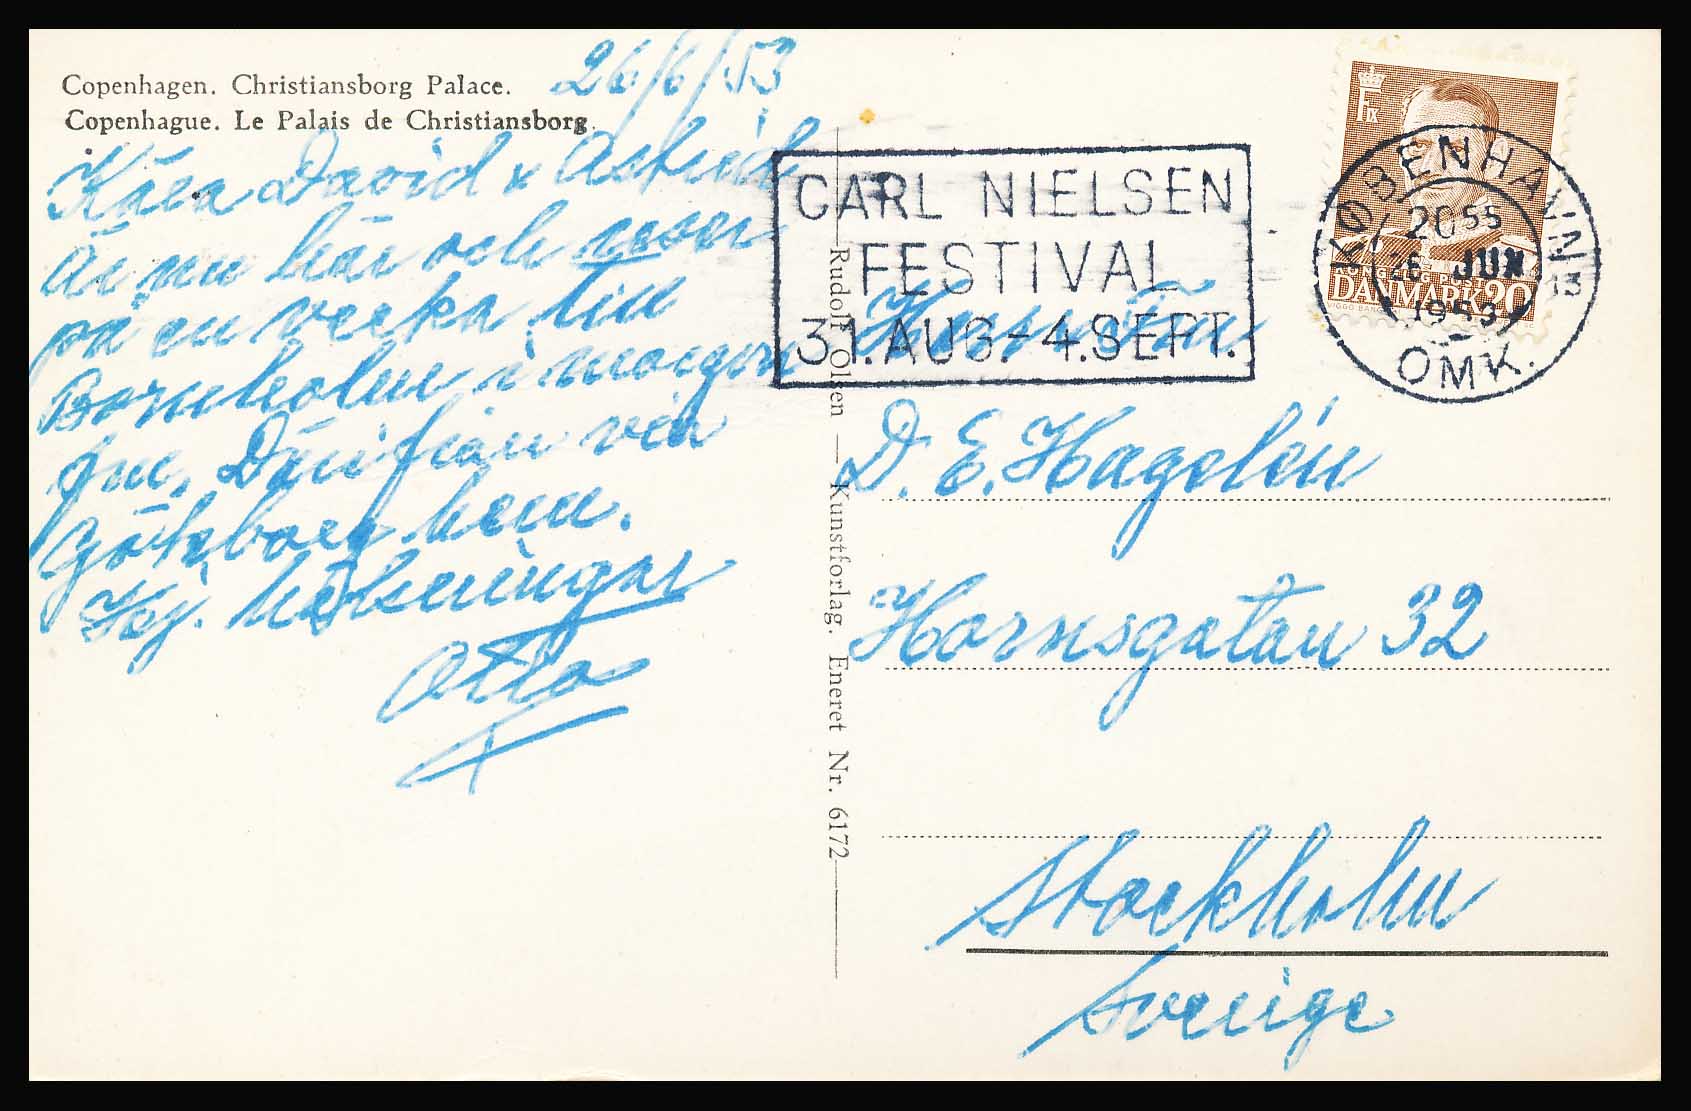 Copenhagen. Christiansborg Palace.
Copenhague. Le Palais de Christiansborg.
26/6/53
Kära David & Astrid
Är nu här och reser
på en vecka till
Bornholm i morgon
fm. Därifrån via
Göteborg hem.
Hj. hälsningar
Otto
Rudolf Olsen — Kunstforlag. Eneret Nr. 6172
CARL NIELSEN
FESTIVAL
31.AUG-4.SEPT.
KØBENHAVN
OMK.
2055
26 JUN
1953
F IX
KONGELIG POST
DANMARK 20
D. E. Hagelén
Hornsgatan 32
Stockholm
Sverige